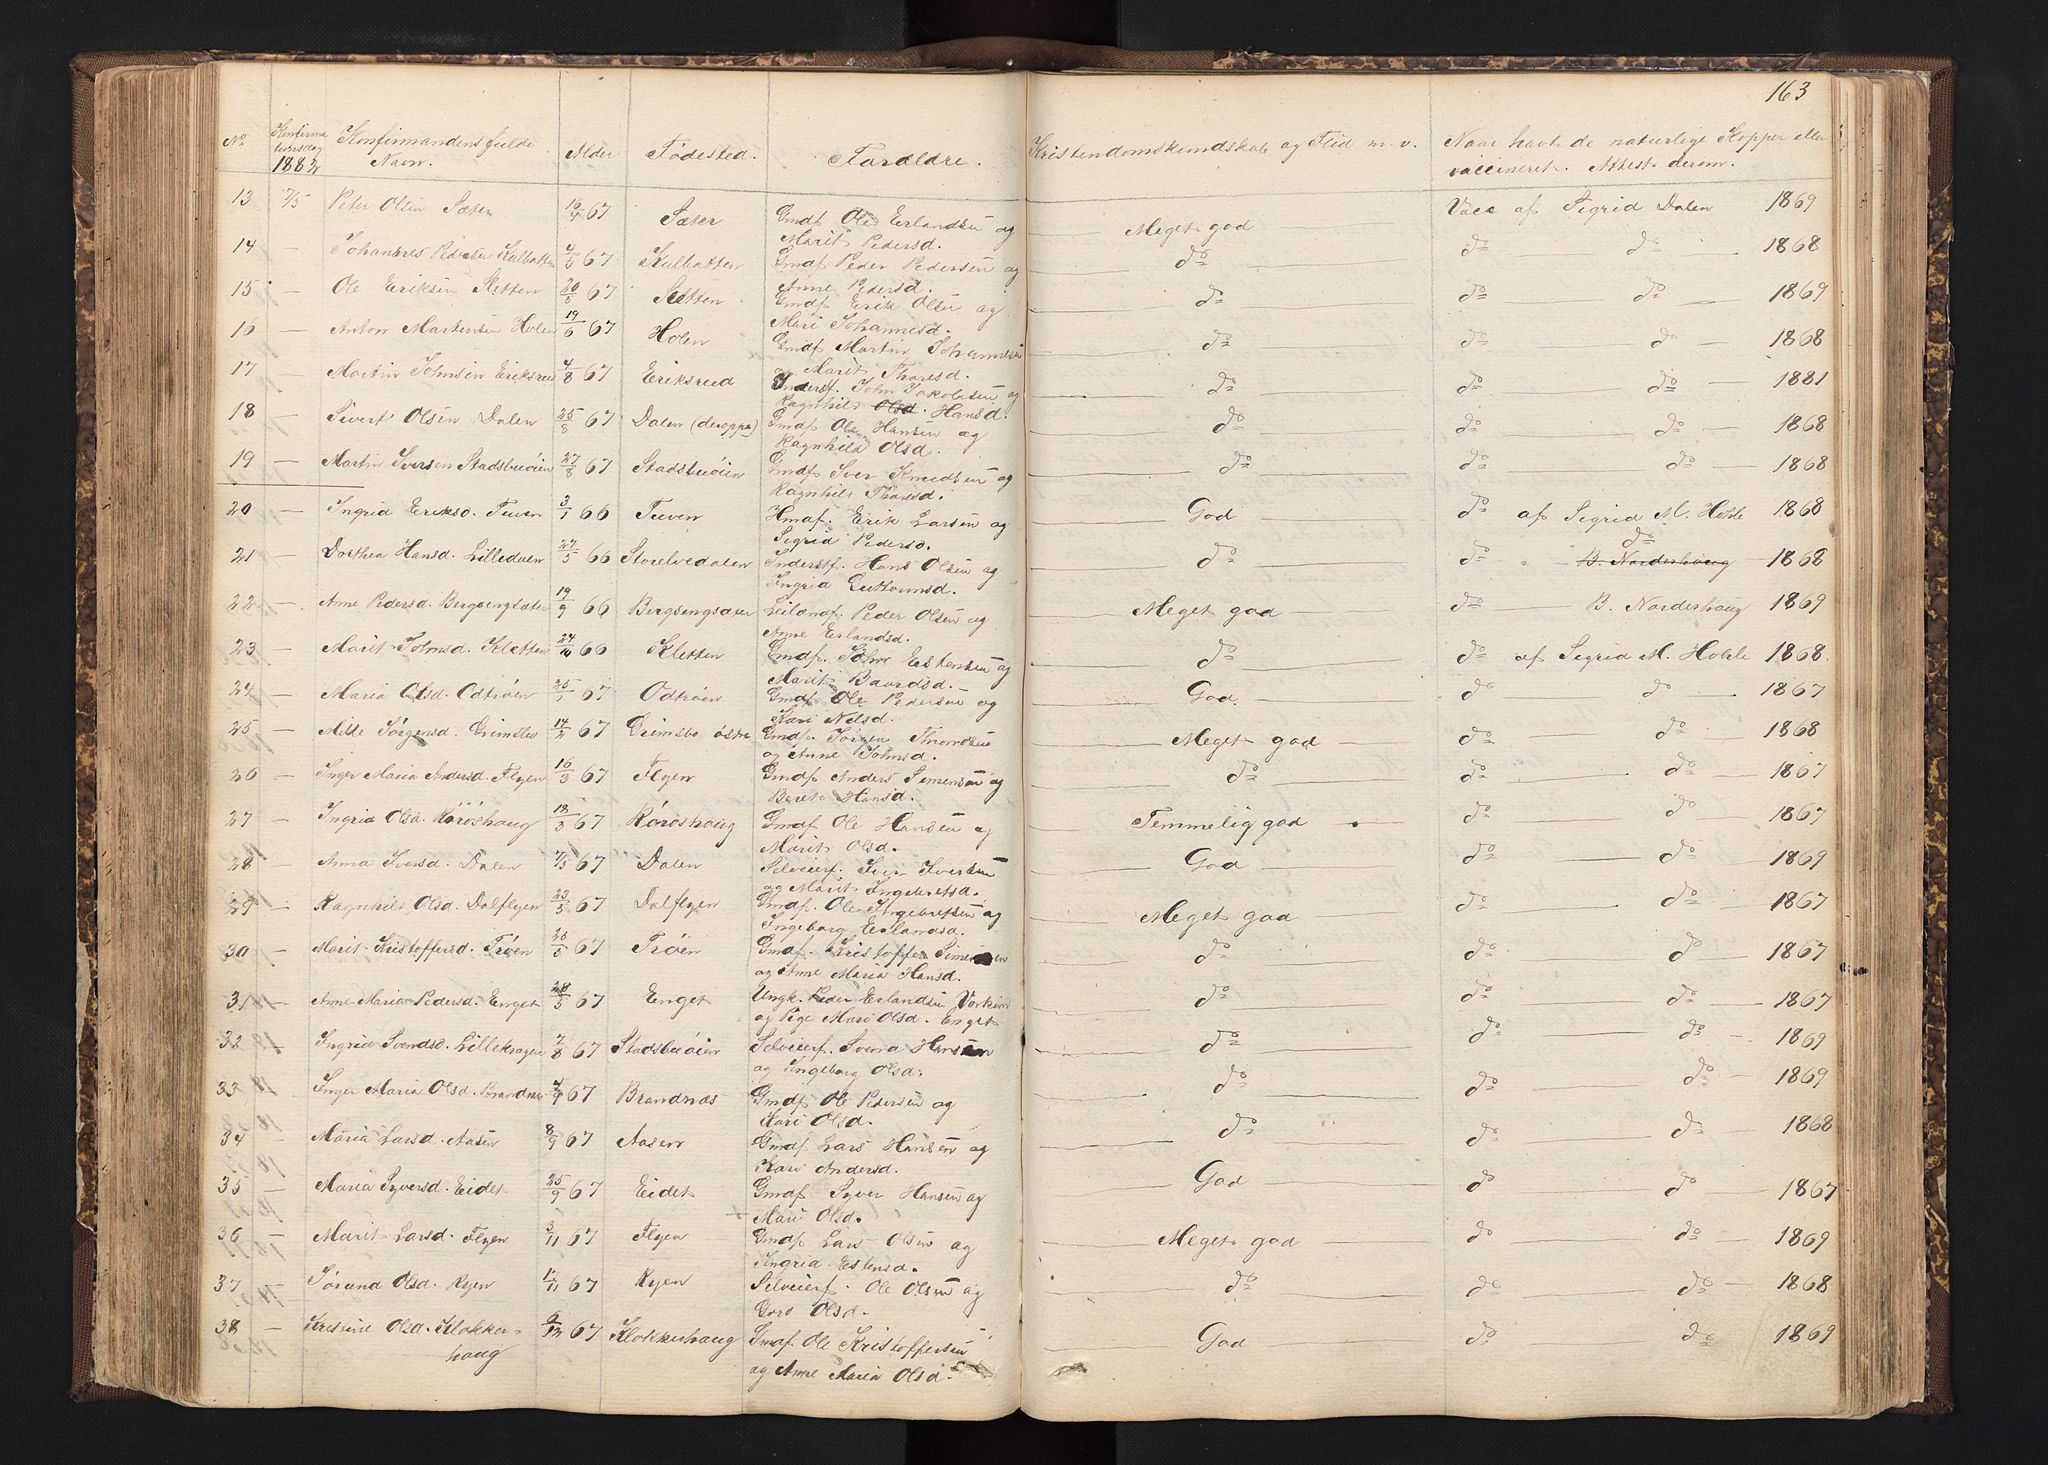 163
No Konfirmationsdag 1882 Konfirmandens fulde Navn. Alder Fødested. Forældre. Kristendomskundskab og Flid m. v. Naar havt de naturlige Kopper eller vaccineret. Attest derom.
13 7/5 Peter Olsen Sæter 67 Sæter Gmdf Ole Erlandsen og Marit Pedersd. Meget god Vacc af Sigrid Dalen 1869
14 — Johannes Pedersen Kulbotten 67 Kulbotten Gmdf Peder Pedersen og Anne Pedersd. do do do 1868
15 — Ole Eriksen Sletten 67 Sletten Gmdf Erik Olsen og Mari Johannesd. do do do 1869
16 — Anton Martinsen Holen 19/6 67 Holen Gmdf Martin Johannesen og Marit Thoresd. do do do 1868
17 — Martin Johnsen Eriksrud 4/8 67 Eriksrud Inderstf. John Jakobsen og Ragnhild Olsd. Hansd. do do do 1881
18 — Sivert Olsen Dalen 25/8 67 Dalen (deroppe) Gmdf Ole Hansen og Ragnhild Olsd. do do do 1868
19 — Martin Iversen Stadsbuøien 27/8 67 Stadsbuøien Gmdf Iver Knudsen og Ragnhild Thoresd. do do do 1868
20 — Ingrid Eriksd. Tuven 3/1 66 Tuven Hmaf. Erik Larsen og Sigrid Pedersd. God do af Sigrid M. Hohle 1868
21 — Dorthea Hansd. Lilledalen 27/5 66 Storelvedalen Inderstf. Hans Olsen og Ingrid Guttormsd. do do do B. Norderhaug 1868
22 — Anne Pedersd. Bergsengsæter 19/9 66 Bergsengsæter Leilændf. Peder Olsen og Anne Erlandsd. Meget god do B. Norderhaug 1869
23 — Marit Johnsd. Kletten 24/10 66 Kletten Gmdf. John Estensen og Marit Baardsd. do do af Sigrid M. Hohle 1868
24 — Maria Olsd. Odtrøen 25/1 67 Odtrøen Gmdf Ole Pedersen og Kari Nilsd. God. do do 1867
25 — Milde Jørgensd. Grimsbo 14/2 67 Grimsbo østre Gmdf. Jørgen Thordsen og Anne Johnsd. Meget god do do 1868
26 — Inger Maria Andersd. Flyen 16/3 67 Flyen Gmdf Anders Simensen og Beret Hansd. do do do 1867
27 — Ingrid Olsd. Røroshaug 18/3 67 Røroshaug Gmdf Ole Hansen og Marit Olsd. Temmelig god do do 1867
28 — Anna Iversd. Dalen 7/5 67 Dalen Selveierf. Iver Iversen og Marit Ingebretsd. God do do 1869
29 — Ragnhild Olsd. Dalflyen 23/5 67 Dalflyen Gmdf. Ole Ingebretsen og Ingeborg Erlandsd. Meget god do do 1867
30 — Marit Kristoffersd. Trøen 67 Trøen Gmdf. Kristoffer Simensen og Anne Maria Hansd. do do do 1867
31 — Anne Maria Pedersd. Enget 28/5 67 Enget Ungk. Peder Erlandsen Vorkinn og Pige Mari Olsd. Enget do do do 1867
32 — Ingrid Svendsd. Lillekvagen 7/8 67 Stadsbuøien Selveierf. Svend Hansen og Ingeborg Olsd. do do do 1869
33 — Inger Maria Olsd. Brandnæs 67 Brandnæs Gmdf Ole Pedersen og Kari Olsd. do do do 1869
34 — Maria Larsd. Aasen 8/9 67 Aasen Gmdf. Lars Hansen og Kari Andersd. do do do 1868
35 — Maria Syversd. Eidet 25/9 67 Eidet Gmdf Syver Hansen og Mari Olsd. God do do 1867
36 — Marit Larsd. Flyen 3/11 67 Flyen Gmdf Lars Olsen og Ingrid Estensd. Meget god do do 1869
37 — Jørand Olsd. Ryen 67 Ryen Selveierf. Ole Olsen og Goro Olsd. do do do 1868
38 — Kristine Olsd. Klokkerhaug 67 Klokkerhaug Gmdf. Ole Kristoffersen og Anne Maria Olsd. God do do 1869